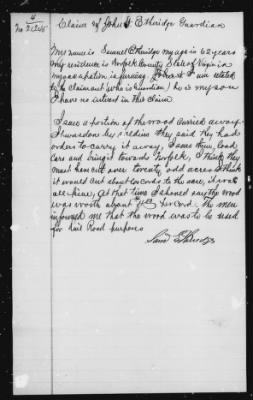 4
No 21245
Claim of John H Etheridge Guardian
My name is Samuel Etheridge my age is 62 years
My residence is Norfolk County State of Virginia
my occupation is farming I am related
to be claimant (who is Guardian) he is my son
I have no interest in this claim
I saw a portion of the wood carried away
It was done by soldiers they said they had
orders to carry it away, I saw them load
cars and bring it towards Norfolk, I think they
must have cut over twenty odd acres I think
it would cut about 60 cords to the acre, it was
all pine, at that time I should say the wood
was worth about per cord. The men
informed me that the wood was to be used
for Rail Road purposes
Saml Etheridge